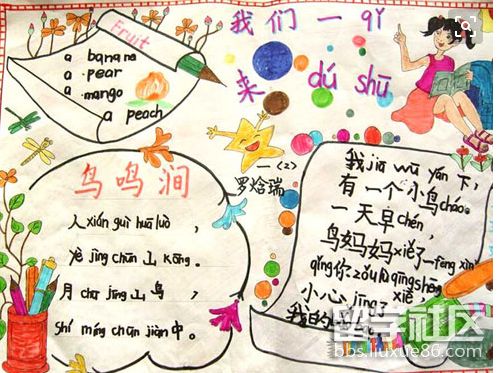 我们一qǐ
来 dú shū
Fruit
a banana
a pear
a mango
a peach
一（2）
罗焓瑞
鸟鸣涧
人xián guì huā luò，
yè jìng chūn shān kōng。
月chū jīng山鸟，
shí míng chūn jiàn中。
我jiā wū yán下，
有一个小鸟cháo。
一天早chén
鸟妈妈xiě了一fēng xìn
qǐng你zǒu lù qīng shēng
小心 jīng了
我的
留学社区
bbs.liuxue86.com